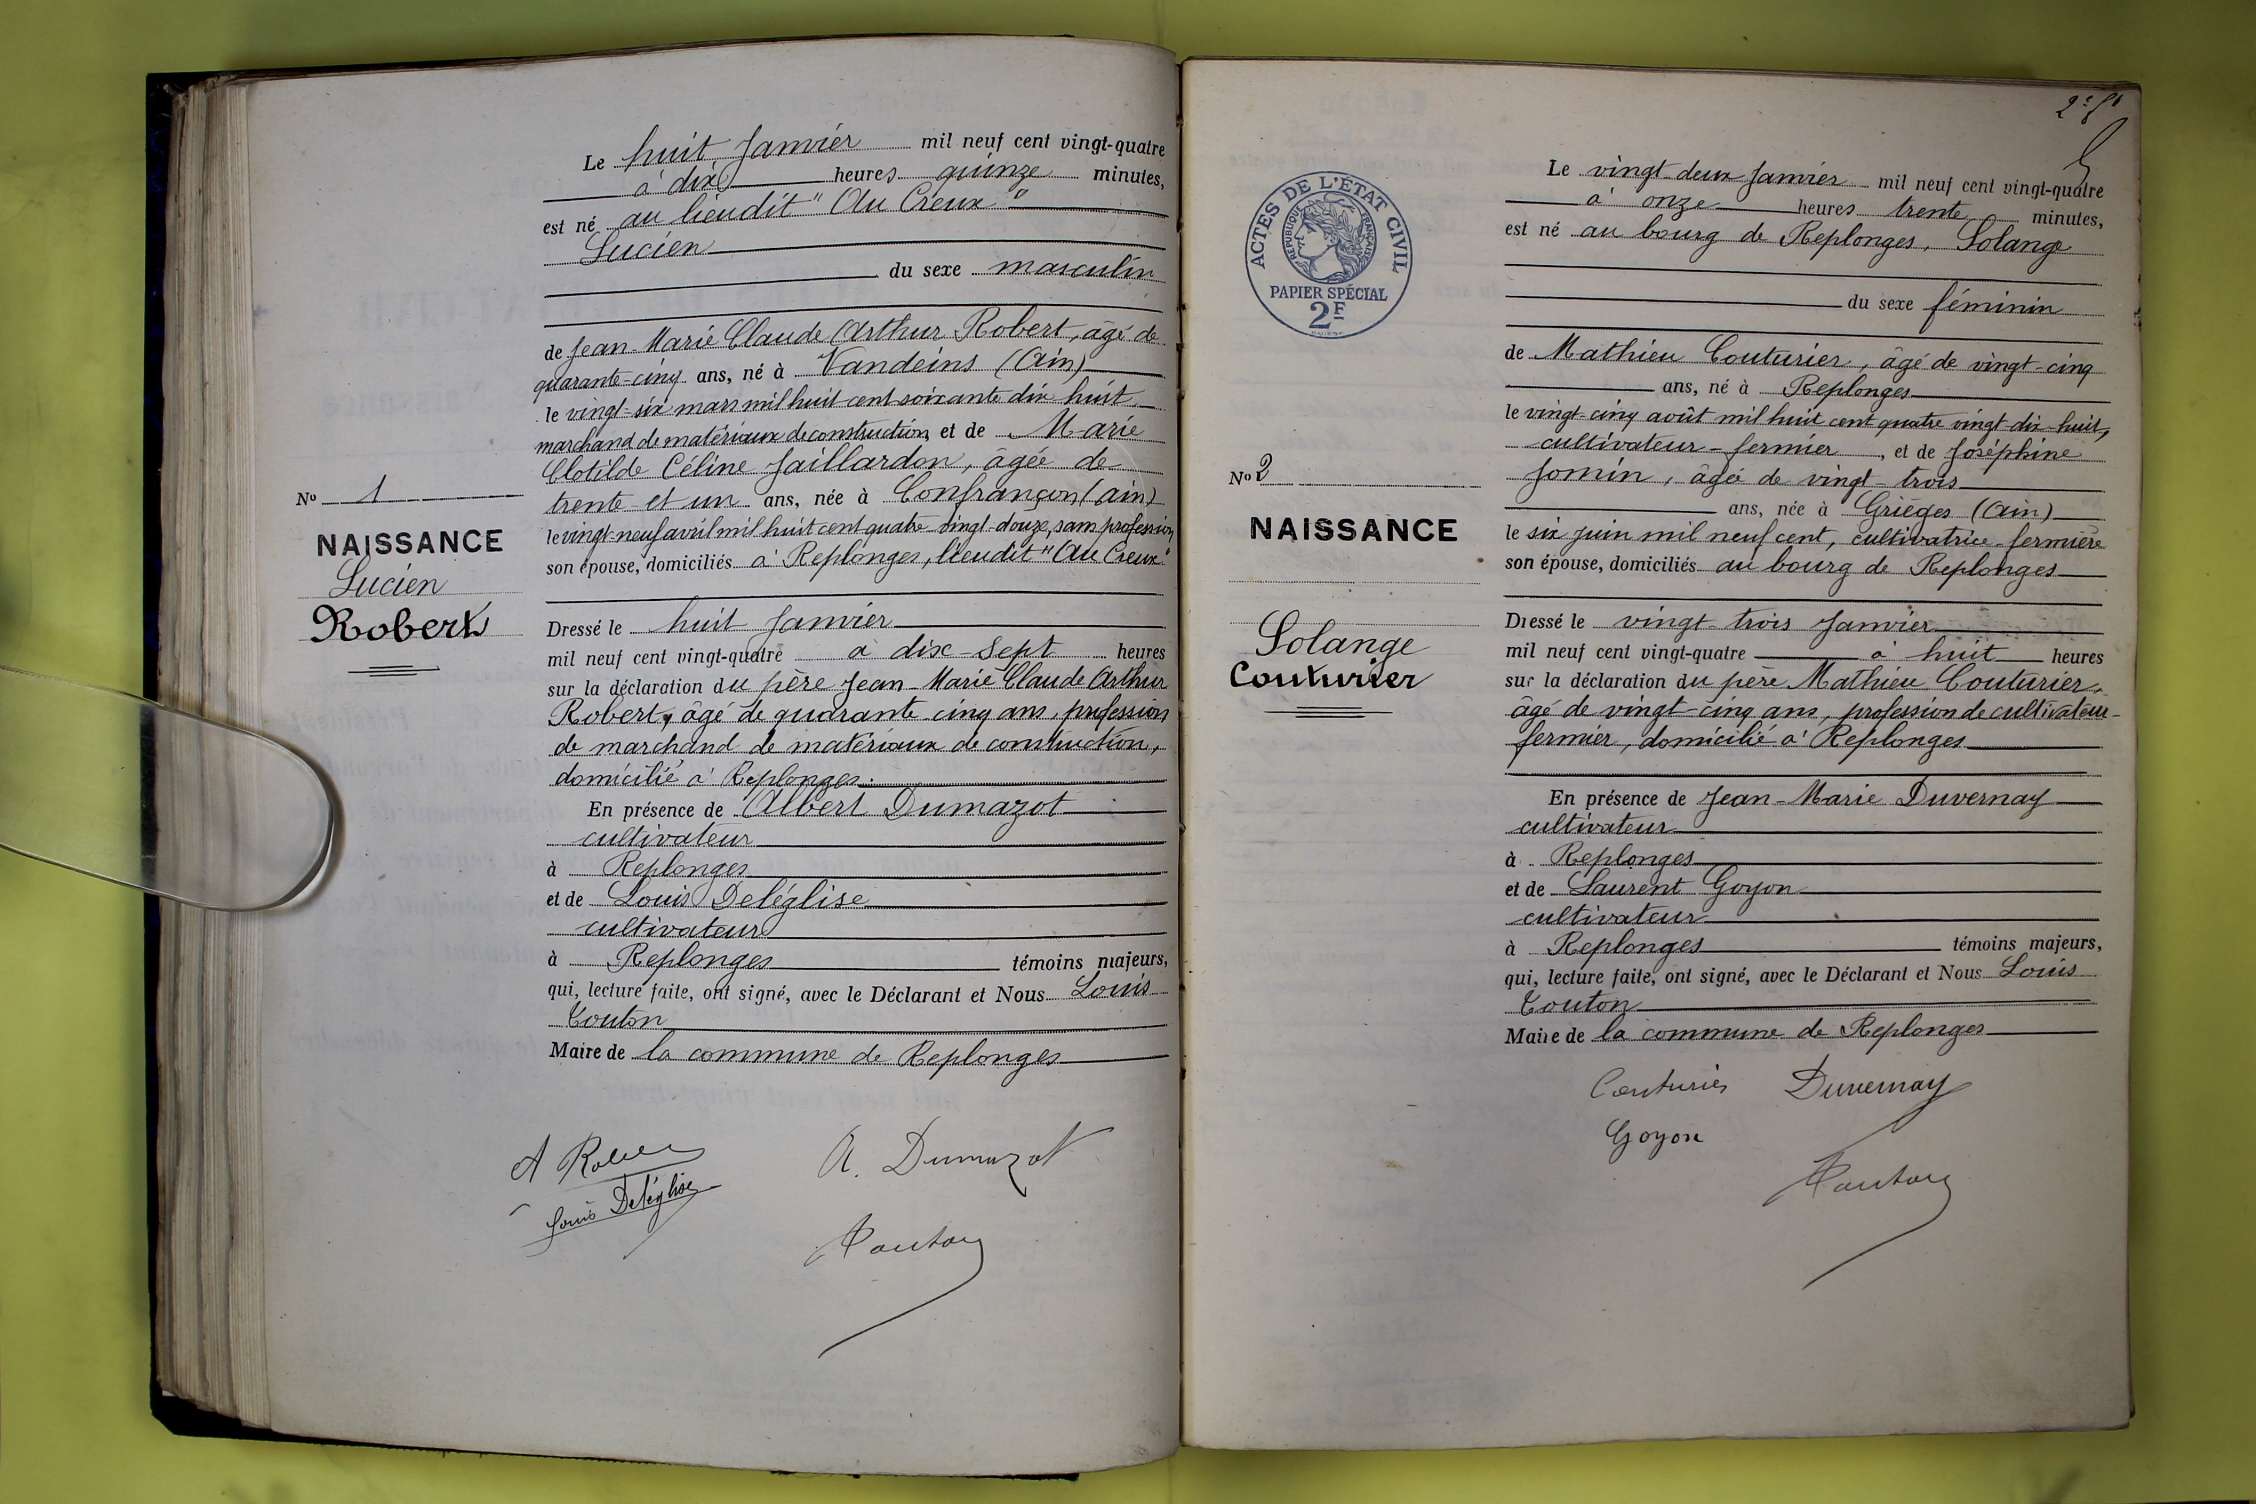 Le huit Janvier mil neuf cent vingt-quatre
à dix heures quinze minutes,
est né au lieudit "Au Creux"
Lucien
du sexe masculin
de Jean-Marie Claude Arthur Robert, âgé de
quarante-cinq ans, né à Vandeins (Ain)
le vingt-six mars mil huit cent soixante dix huit
marchand de matériaux de construction, et de Marie
Clotilde Céline Jaillardon, âgée de
trente et un ans, née à Confrançon (Ain)
le vingt-neuf avril mil huit cent quatre-vingt-douze, sans profession
son épouse, domiciliés à Replonges, lieudit "Au Creux"
Dressé le huit Janvier
mil neuf cent vingt-quatre à dix-sept heures
sur la déclaration du père Jean-Marie Claude Arthur
Robert, âgé de quarante cinq ans, profession
de marchand de matériaux de construction,
domicilié à Replonges.
En présence de Albert Dumazot
cultivateur
à Replonges
et de Louis Deléglise
cultivateur
à Replonges témoins majeurs,
qui, lecture faite, ont signé, avec le Déclarant et Nous Louis
Touton
Maire de la commune de Replonges
No 1
NAISSANCE
Lucien
Robert
A Robert
A. Dumazot
Louis Deléglise
Touton
ACTES DE L'ÉTAT CIVIL
RÉPUBLIQUE FRANÇAISE
PAPIER SPÉCIAL
2F
Le vingt-deux Janvier mil neuf cent vingt-quatre
à onze heures trente minutes,
est né au bourg de Replonges, Solange
du sexe féminin
de Mathieu Couturier, âgé de vingt-cinq
ans, né à Replonges
le vingt-cinq août mil huit cent quatre vingt-dix-huit,
cultivateur-fermier, et de Joséphine
Jomin, âgée de vingt-trois
ans, née à Grièges (Ain)
le six juin mil neuf cent, cultivatrice-fermière
son épouse, domiciliés au bourg de Replonges
Dressé le vingt-trois Janvier
mil neuf cent vingt-quatre à huit heures
sur la déclaration du père Mathieu Couturier,
âgé de vingt-cinq ans, profession de cultivateur-
fermier, domicilié à Replonges
En présence de Jean-Marie Duvernay
cultivateur
à Replonges
et de Laurent Goyon
cultivateur
à Replonges témoins majeurs,
qui, lecture faite, ont signé, avec le Déclarant et Nous Louis
Touton
Maire de la commune de Replonges
No 2
NAISSANCE
Solange
Couturier
Couturier Duvernay
Goyon
Touton